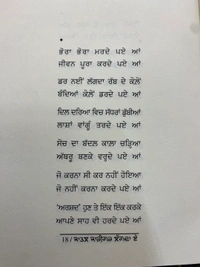 ਭੋਰਾ ਭੋਰਾ ਮਰਦੇ ਪਏ ਆਂ
ਜੀਵਨ ਪੂਰਾ ਕਰਦੇ ਪਏ ਆਂ
ਡਰ ਨਈਂ ਲੱਗਦਾ ਰੱਬ ਦੇ ਕੋਲੋਂ
ਬੰਦਿਆਂ ਕੋਲੋਂ ਡਰਦੇ ਪਏ ਆਂ
ਦਿਲ ਦਰਿਆ ਵਿਚ ਸੱਧਰਾਂ ਡੁੱਬੀਆਂ
ਲਾਸ਼ਾਂ ਵਾਂਗੂੰ ਤਰਦੇ ਪਏ ਆਂ
ਸੋਚ ਦਾ ਬੱਦਲ ਕਾਲਾ ਚੜ੍ਹਿਆ
ਅੱਥਰੂ ਬਣਕੇ ਵਰ੍ਹਦੇ ਪਏ ਆਂ
ਜੋ ਕਰਨਾ ਸੀ ਕਰ ਨਹੀਂ ਹੋਇਆ
ਜੋ ਨਹੀਂ ਕਰਨਾ ਕਰਦੇ ਪਏ ਆਂ
'ਅਰਸ਼ਦ' ਹੁਣ ਤੇ ਇੱਕ ਇੱਕ ਕਰਕੇ
ਆਪਣੇ ਸਾਹ ਵੀ ਹਰਦੇ ਪਏ ਆਂ
18 /